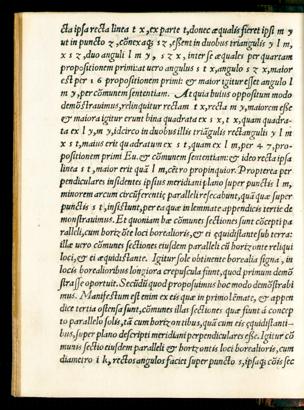 cta ipsa recta linea t x, ex parte t, donec æqualis fieret ipsi m y
ut in puncto z, cōnexaq́; s z, essent in duobus triangulis y l m,
x s z, duo anguli l m y, s z x, inter se æquales per quartam
propositionem primi: at uero angulus s t x, angulo s z x, maior
est per 16 propositionem primi: & maior igitur esset angulo l
m y, per cōmunem sententiam. At quia huius oppositum modo
demōstrauimus, relinquitur rectam t x, recta m y, maiorem esse
& maiora igitur erunt bina quadrata ex s x, t x, quam quadra-
ta ex l y, m y, idcirco in duobus illis triāgulis rectangulis y l m
x s t, maius erit quadratum ex s t, quam ex l m, per 47, pro-
positionem primi Eu. & cōmunem sententiam: & ideo recta ipsa
linea s t, maior erit quā l m, cętro propinquior. Propterea per
pendiculares insidentes ipsius meridiani plano super punctis l m,
minorem arcum circūferentię paralleli resecabunt, quā quæ super
punctis s t, insistunt, per ea quæ in lemmate appendicis tertiæ de
monstrauimus. Et quoniam hæ cōmunes sectiones sunt cōcepti pa
ralleli, cum horizōte loci borealioris, & ei æquidistante sub terra:
illæ uero cōmunes sectiones eiusdem paralleli cū horizonte reliqui
loci, & ei æquidistante. Igitur sole obtinente borealia signa, in
locis borealioribus longiora crepuscula fiunt, quod primum demō
strasse oportuit. Secūdū quod proposuimus hoc modo demōstrabi
mus. Manifestum est enim ex eis quæ in primo lēmate, & appen
dice tertia ostensa sunt, cōmunes illas sectiones quæ fiunt á concep
to parallelo solis, tā cum horizontibus, quā cum eis ęquidistanti-
bus, super plano descripti meridiani perpendiculares esse. Igitur cō
munis sectio eiusdem paralleli & horizontis loci borealioris, cum
diametro i k, rectos angulos faciet super puncto s, ipsaq́; cōis sec